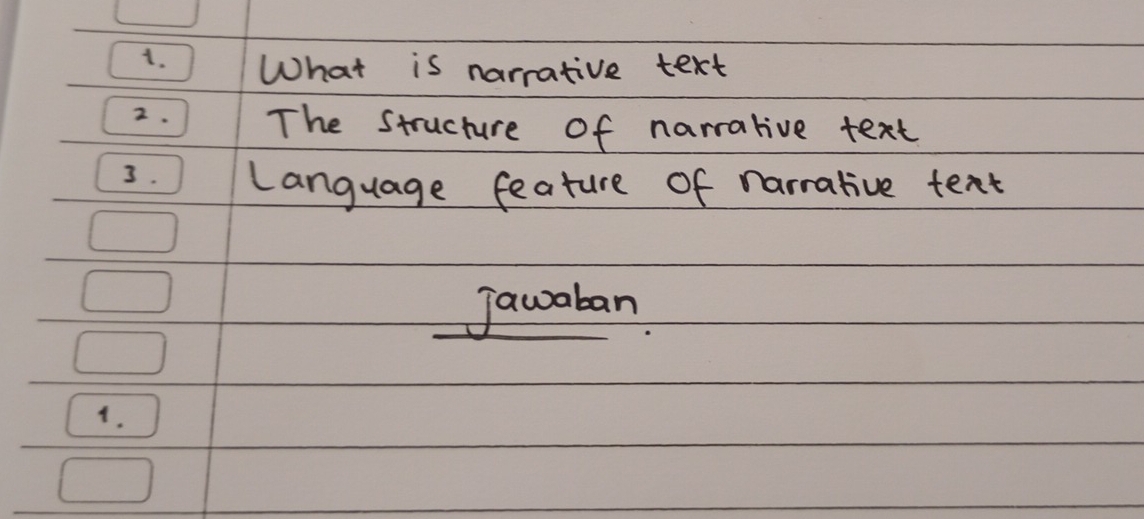 1. What is narrative text
2. The structure of narrative text
3. Language feature of narrative text
Jawaban.
1.